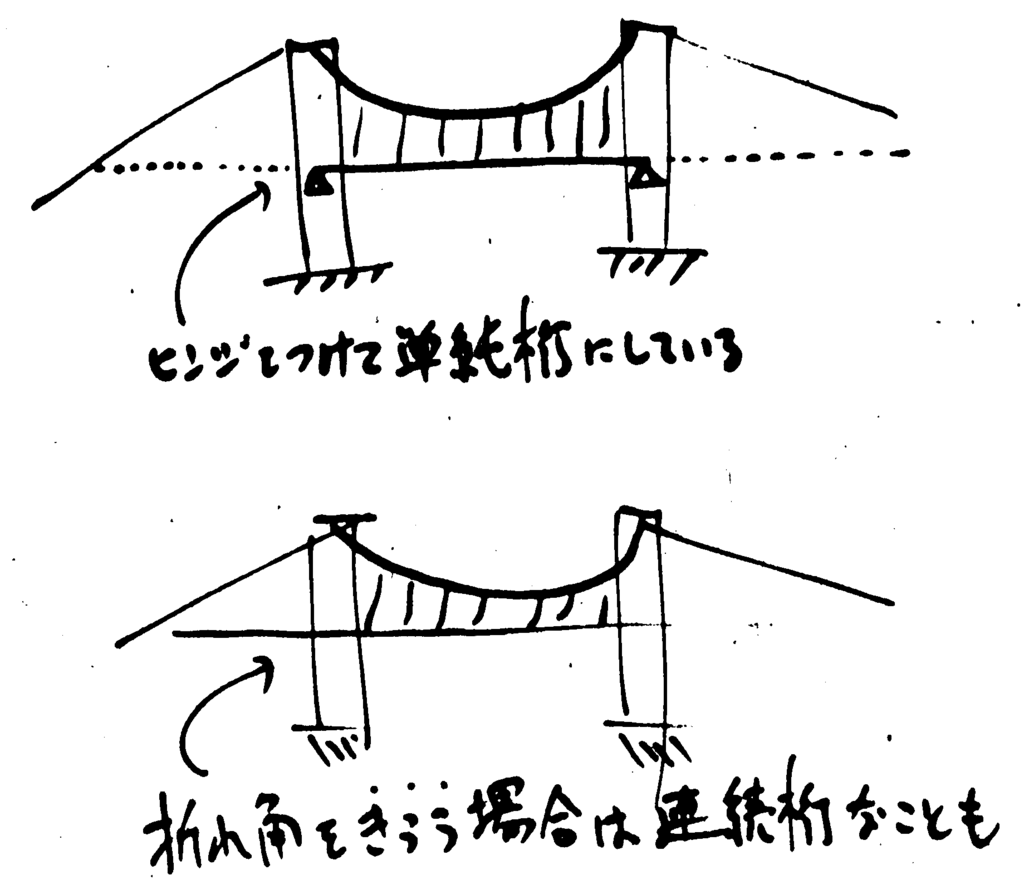 ヒンジをつけて単純桁にしている
折れ角をきらう場合は連続桁なことも